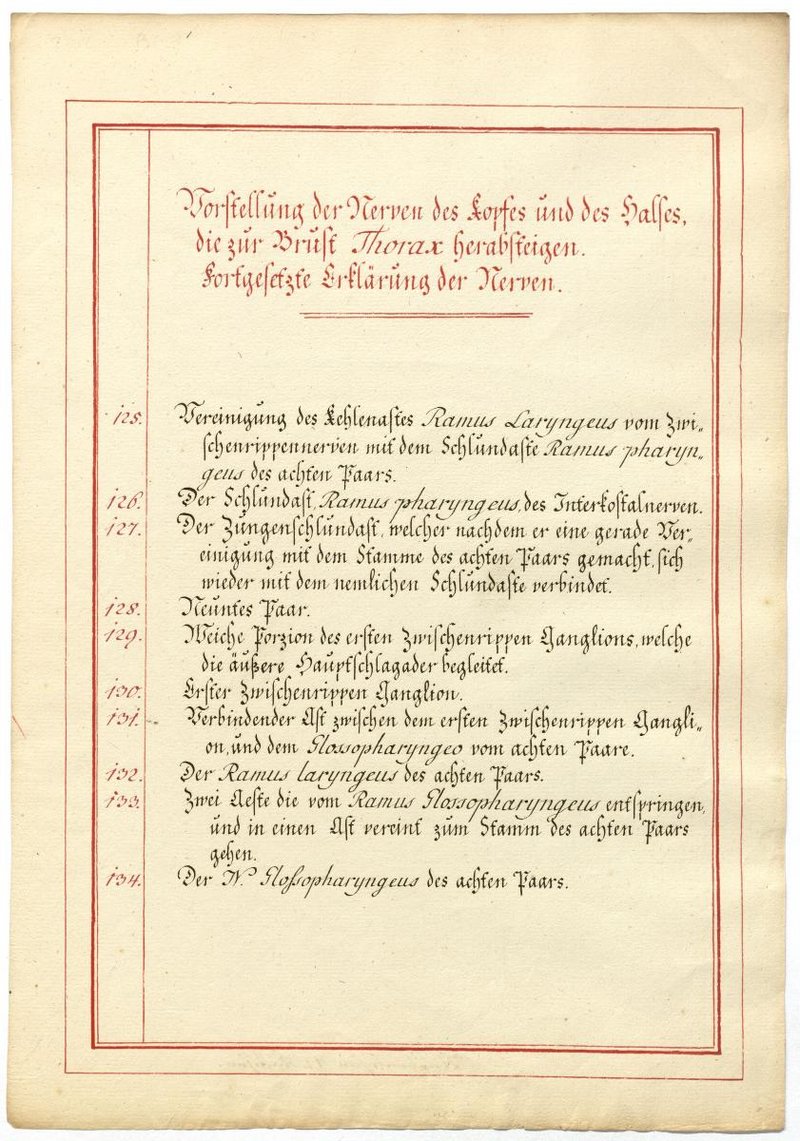 Vorstellung der Nerven des Kopfes und des Halses,
die zur Brust Thorax herabsteigen.
Fortgesetzte Erklärung der Nerven.
125. Vereinigung des Kehlenastes Ramus Laryngeus vom Zwi„
schenrippennerven mit dem Schlundaste Ramus pharyn„
geus des achten Paars.
126. Der Schlundast, Ramus pharyngeus, des Interkostalnerven.
127. Der Zungenschlundast, welcher nachdem er eine gerade Ver„
einigung mit dem Stamme des achten Paars gemacht, sich
wieder mit dem nemlichen Schlundaste verbindet.
128. Neuntes Paar.
129. Weiche Porzion des ersten Zwischenrippen Ganglions, welche
die äußere Hauptschlagader begleitet.
130. Erster Zwischenrippen Ganglion.
131. Verbindender Ast zwischen dem ersten Zwischenrippen Gangli„
on, und dem Glossopharyngeo vom achten Paare.
132. Der Ramus laryngeus des achten Paars.
133. Zwei Aeste die vom Ramus Glossopharyngeus entspringen,
und in einen Ast vereint zum Stamm des achten Paars
gehen.
134. Der N. Gloßopharyngeus des achten Paars.